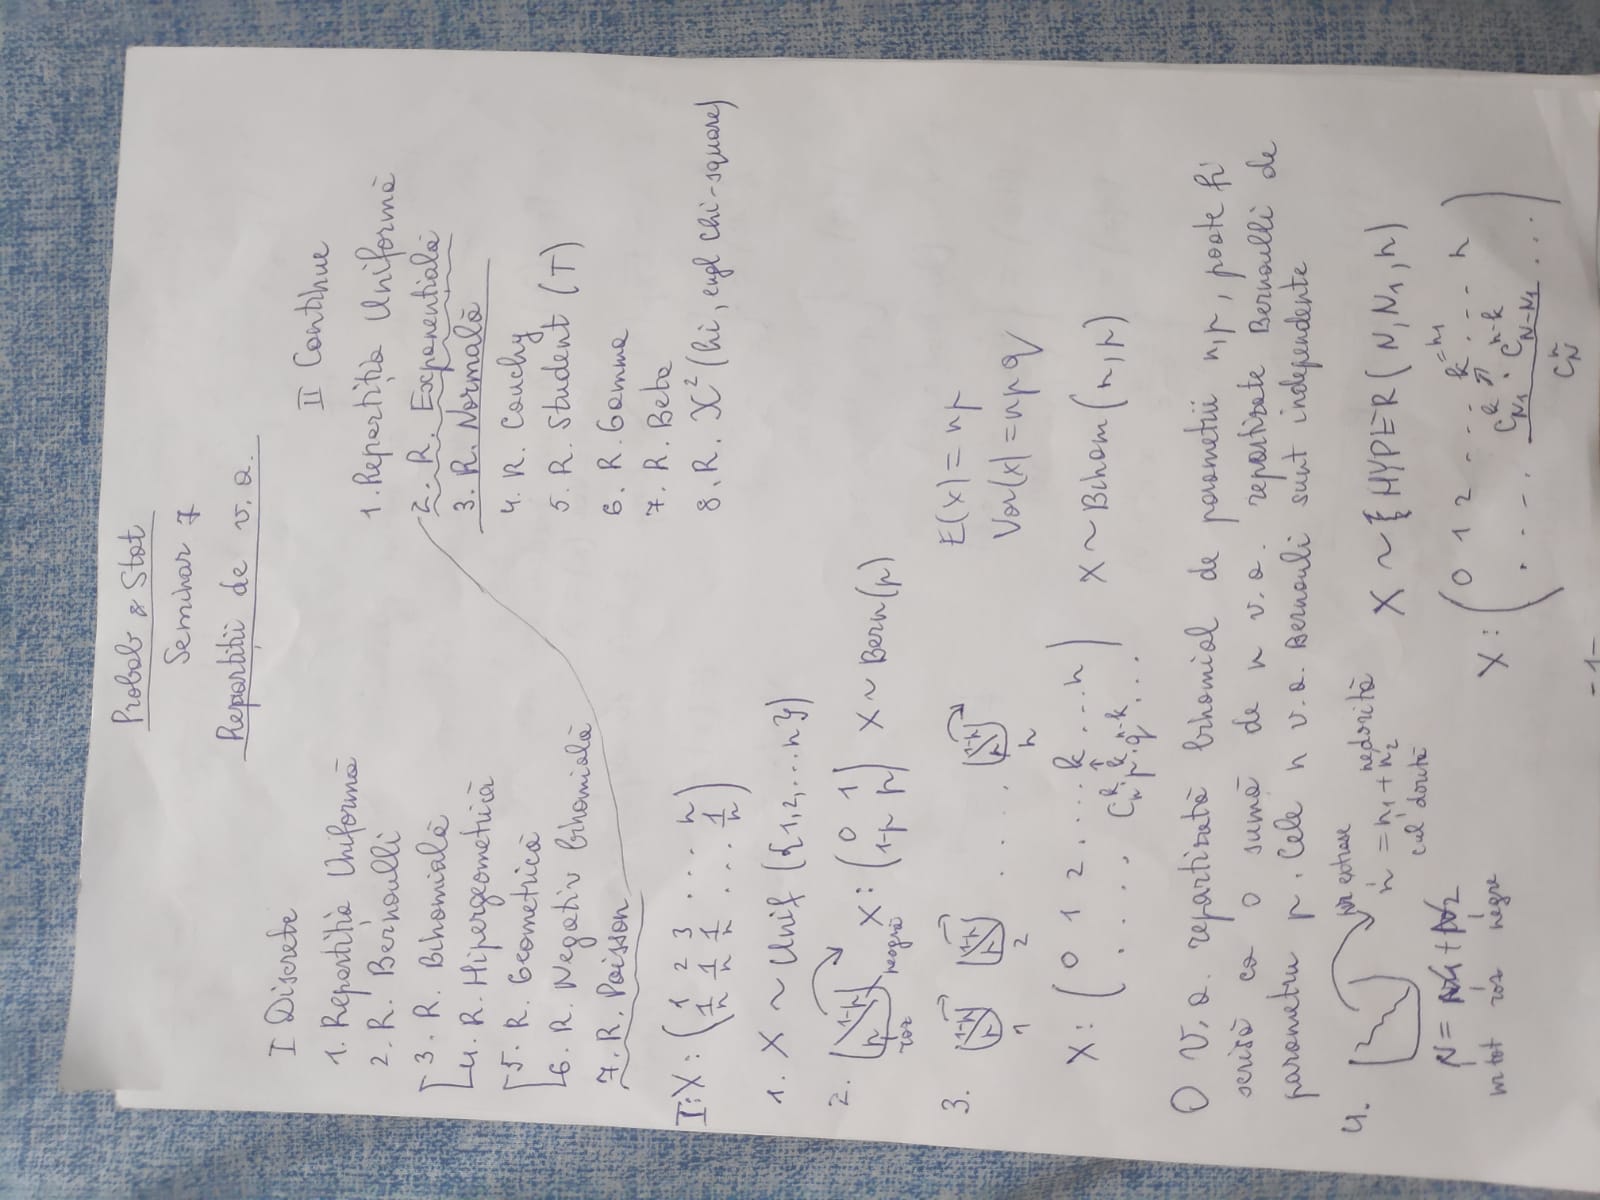 Probab & Stat
Seminar 7
Repartiții de v.a.
I Discrete
1. Repartiția Uniformă
2. R. Bernoulli
3. R. Binomială
4. R. Hipergeometrică
5. R. Geometrică
6. R. Negativ binomială
7. R. Poisson
II Continue
1. Repartiția Uniformă
2. R. Exponențială
3. R. Normală
4. R. Cauchy
5. R. Student (T)
6. R. Gamma
7. R. Beta
8. R. X² (hi, engl chi-square)
I: X : ( 1 2 3 ... n )
( 1/n 1/n 1/n ... 1/n )
1. X ~ Unif ({1,2,...n})
2. p 1-p roz neagră X : ( 0 1 ) X ~ Bern(p)
( 1-p p )
3. p 1-p p 1-p .... p 1-p
1 2 n
E(x) = np
Var(x) = npq
X : ( 0 1 2 .... k ... n ) X ~ Binom (n, p)
( .... C_n^k · p^k · q^{n-k} ... )
O v.a. repartizată binomial de parametrii n,p, poate fi
scrisă ca o sumă de n v.a. repartizate Bernoulli de
parametru p. Cele n v.a. Bernouli sunt independente
4. nr extrase
n = n₁ + n₂ nedorită
cul dorită
N = N1 + N2
nr tot roz negre
X ~ HYPER (N, N₁, n)
X : ( 0 1 2 ... k =n₁ .... n )
( .... C_{N₁}^k · C_{N-N₁}^{n-k} / C_N^n ... )
-1-